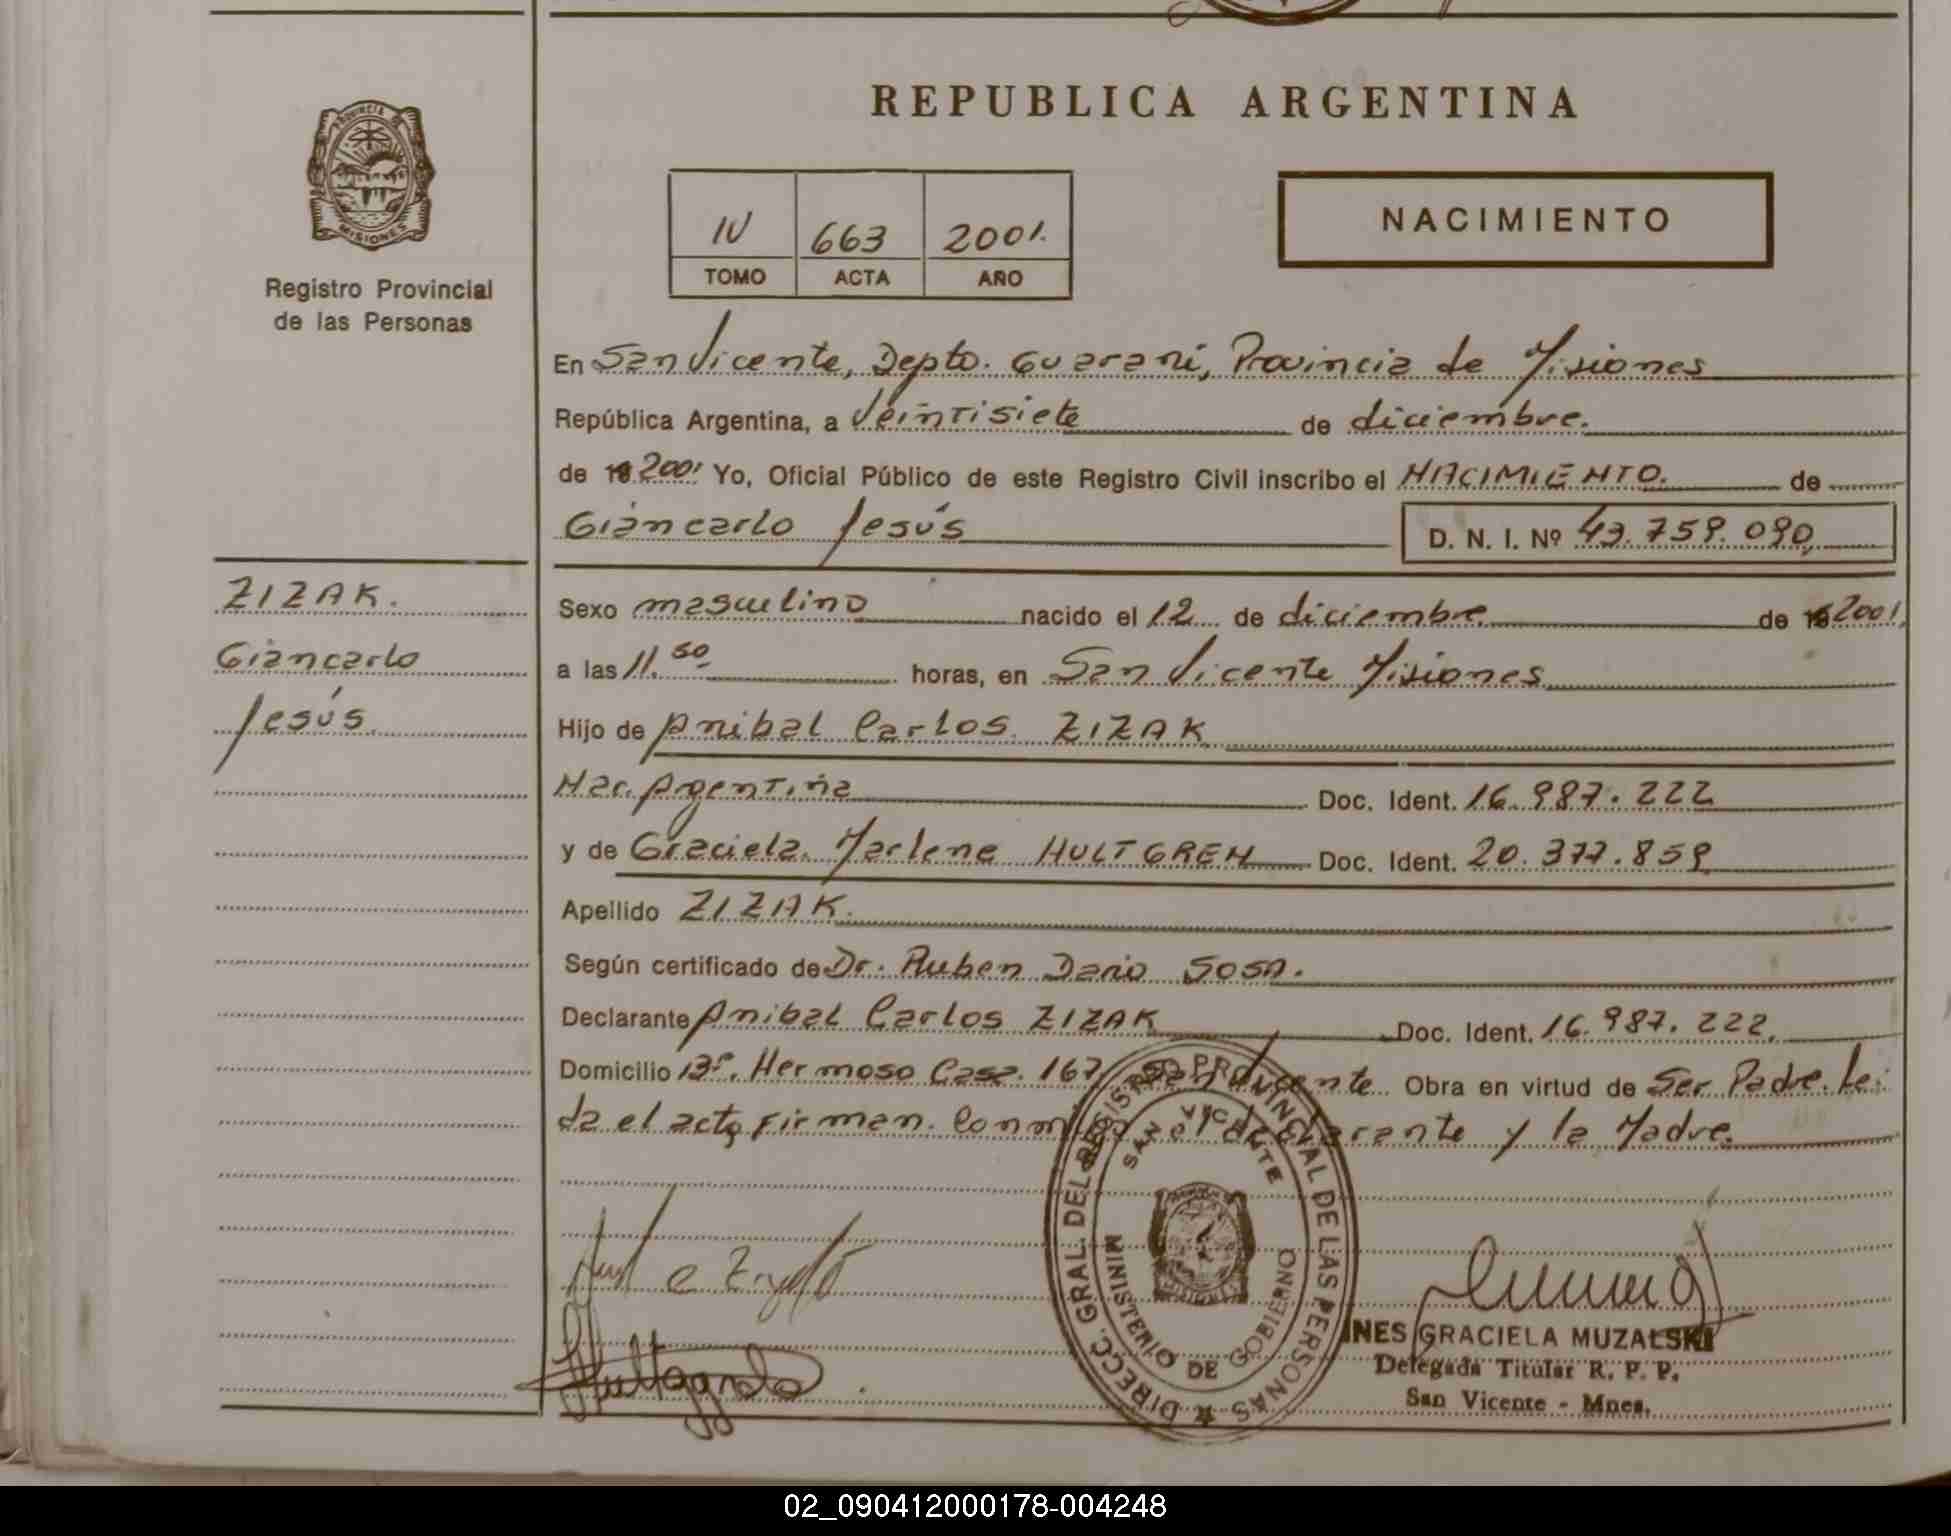 REPUBLICA ARGENTINA
PROVINCIA DE
MISIONES
Registro Provincial
de las Personas
IV 663 2001.
TOMO ACTA AÑO
NACIMIENTO
En San Vicente, Depto. Guaraní, Provincia de Misiones
República Argentina, a Veintisiete de diciembre.
de 19 2001 Yo, Oficial Público de este Registro Civil inscribo el NACIMIENTO. de
Giancarlo Jesús D. N. I. Nº 43.759.090,
ZIZAK.
Giancarlo
Jesús
Sexo masculino nacido el 12 de diciembre de 19 2001,
a las 11.50 horas, en San Vicente Misiones
Hijo de Anibal Carlos ZIZAK
Nac. Argentina Doc. Ident. 16.987.222
y de Graciela Marlene HULTGREN Doc. Ident. 20.377.859
Apellido ZIZAK.
Según certificado de Dr. Ruben Dario Sosa.
Declarante Anibal Carlos ZIZAK Doc. Ident. 16.987.222.
Domicilio Bº. Hermoso Casa 167 San Vicente Obra en virtud de Ser Padre. Leí
da el acta firman Conmigo el declarante y la Madre.
DIRECC. GRAL. DEL REGISTRO PROVINCIAL DE LAS PERSONAS
SAN VICENTE
MINISTERIO DE GOBIERNO
INES GRACIELA MUZALSKI
Delegada Titular R. P. P.
San Vicente - Mnes.
02_090412000178-004248